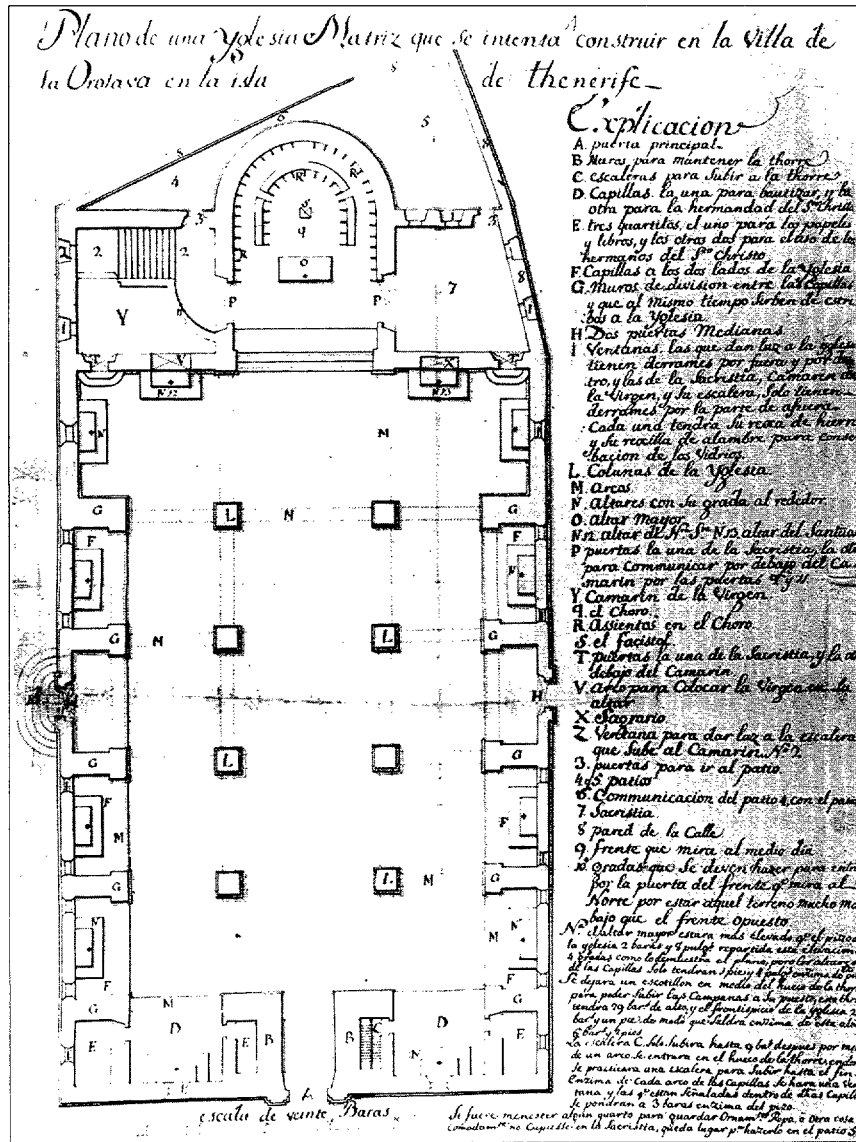 Plano de una Yglesia Matriz que se intenta construir en la Villa de
la Orotava en la isla de thenerife
Explicacion
A. puerta principal.
B Muros para mantener la thorre
C escaleras para subir a la thorre
D. Capillas. la una para bautizar, y la
otra para la hermandad del Sto. Christo
E tres quartitos, el uno para los papeles
y libros, y los otros dos para el uso de los
hermanos del Sto Christo.
F. Capillas a los dos lados de la Yglesia
G. Muros de division entre las Capillas
y que al mismo tiempo sirben de estri
bos a la Yglesia
H Dos puertas Medianas
I Ventanas, las que dan luz a la yglesia
tienen derrames por fuera y por den
tro, y las de la Sacristia, Camarin de
la Virgen, y su escalera, solo tienen
derrames por la parte de afuera.
Cada una tendra su rexa de hierro
y su rexilla de alambre para conse
bacion de los Vidrios.
L. Colunas de la Yglesia
M arcos
N. Altares con su grada al rededor
O. altar Mayor
N12 altar de Na. Sra. N13 altar del Santua
P puertas la una de la Sacristia, la
para Communicar por debajo del Ca
marin por las puertas
Y Camarin de la Virgen
q. el Choro.
R Assientos en el Choro
S. el facistol
T puertas la una de la Sacristia, y la
debajo del Camarin
V. arco para Colocar la Virgen en la
altar
X Sagrario
Z Ventana para dar luz a la escalera
que sube al Camarin
3. puertas para ir al patio
4 y 5 patios
6. Communicacion del patio 4 con el
7 Sacristia
8 pared de la Calle
9 frente que mira al medio dia
10 gradas que se deven hazer para entr
por la puerta del frente qe mira al
Norte por estar aquel terreno mucho ma
bajo que el frente opuesto
Na. el altar mayor estara mas elevado qe el pizo
la yglesia 2 baras y 8 pulgs repartida esta elevacion
4 gradas como lo demuestra el plano, pero los altares
de las Capillas solo tendran 1 pie y 4 pulgs enzima de
Se dejara un escotillon en medio del hueco de la thor
para poder subir las Campanas a su puesto, esta thor
tendra 29 bars de alto, y el frontispicio de la yglesia 2
bars y un pie, de modo que saldra enzima de esta
6 bars y 2 pies
La escalera C. solo subira hasta 9 bars despues por
de un arco se entrara en el hueco de la thorre
se practicara una escalera para subir hasta el fin
Enzima de Cada arco de las Capillas se hara una ven
tana, y las qe estan señaladas dentro de dhas Capill
se pondran a 3 baras enzima del pizo
escala de veinte Baras.
Si fuere menester algun quarto para guardar Ornamtos Ropa, o otra cosa
comodamte no Cupiesse en la Sacristia, queda lugar pa hazerlo en el patio 5